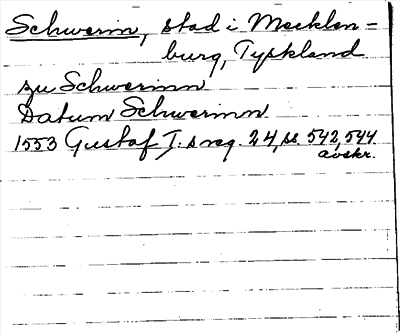 Schwerin, stad i Mecklen=
burg, Tyskland
zu Schwerinn
Datum Schwerinn
1553 Gustaf I.s reg. 24, ss. 542, 544
avskr.